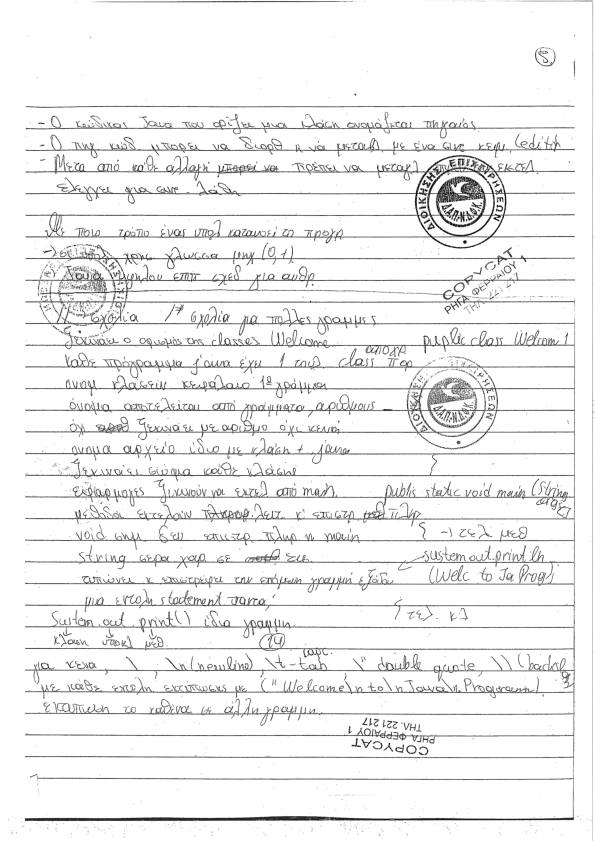 5
- Ο κώδικας Java που ορίζει μια κλάση ονομάζεται πηγαίος
- Ο πηγ κωδ μπορει να διορθ κ να μεταβλ με ένα συντ κειμ (editor
- Μετα από κάθε αλλαγή μπορει να πρέπει να μεταγλ εκτελ.
ελεγχει για συν. λάθη
Με ποιο τρόπο ένας υπολ κατανοεί τη προγρ
χρησ γλωσσα μηχ (0,1)
Java υψηλου επιπ σχεδ για ανθρ.
// σχόλια /* σχόλια για πολλες γραμμες
Ξεκιναει ο ορισμός της classes Welcome public class Welcome 1
Κάθε πρόγραμμα java έχει 1 τουλ. class
ονομ κλάσεων κεφαλαιο 1ο γράμμα
όνομα αποτελείται από γραμματα, αριθμους _
όχι ξεκιναει με αριθμο όχι κενα
ονομα αρχείο ίδιο με κλάση + java
Ξεκιναει σώμα κάθε κλάσης {
εφαρμογες ξεκινούν να εκτελ από main. public static void main (String
args[])
μέθοδοι εκτελούν λειτ κ' επιστρ πληρ
void σημ δεν επιστρ πληρ η main { -) τελ μεθ
string σειρα χαρ σε system.out.println
τυπώνει κ επιστρέφει την επόμενη γραμμή εξόδου (Welc to Ja Prog)
μια εντολη statement παντα ;
System.out.print() ίδια γραμμη. } τελ. κλ
κλάση υποκλ μεθ. 14
για κενα, \, \n (newline), \t - tab \" double quote, \\ (backsl
με κάθε εντολη εκτυπωσης με ("Welcome\n to\n Java\n Programm).
εκτυπωση το καθένα σε άλλη γραμμη.
ΔΙΟΙΚΗΣΗΣ ΕΠΙΧΕΙΡΗΣΕΩΝ
Δ.Α.Π-Ν.Δ.Φ.Κ.
COPYCAT
ΡΗΓΑ ΦΕΡΡΑΙΟΥ 1
ΤΗΛ. 221 217
Δ.Α.Π-Ν.Δ.Φ.Κ.
COPYCAT
ΡΗΓΑ ΦΕΡΡΑΙΟΥ 1
ΤΗΛ. 221 217